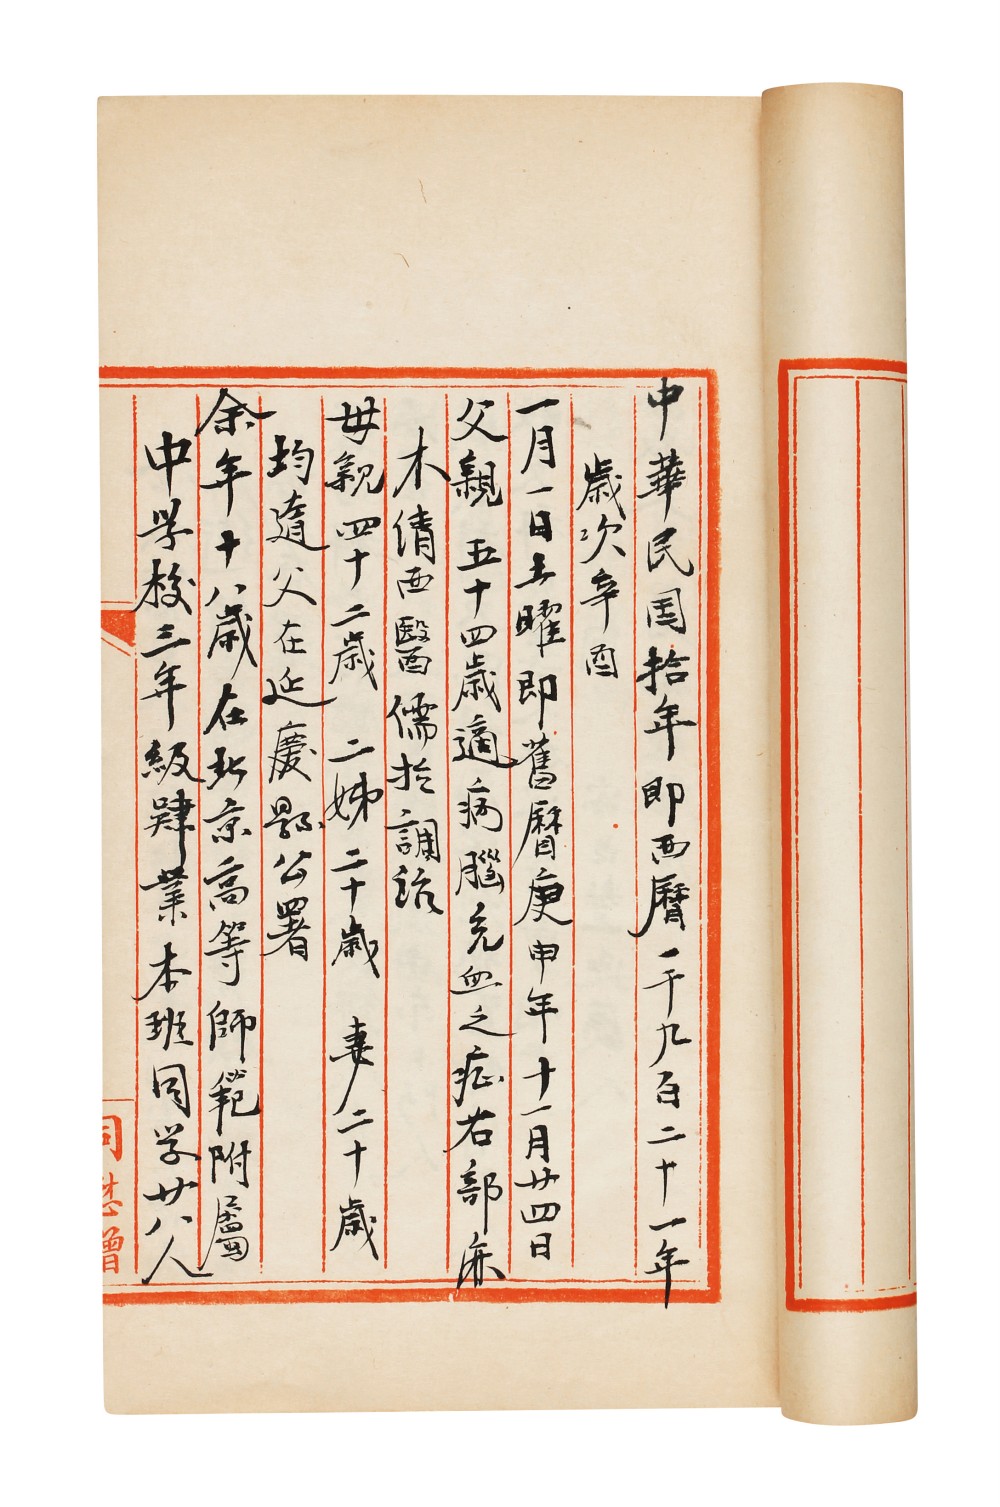 中華民国拾年即西曆一千九百二十一年
歳次辛酉
一月一日土曜即舊曆庚申年十一月廿四日
父親 五十四歳適病腦充血之症右部麻
木倩西醫儒拉調治
母親四十二歳 二姊二十歳 妻二十歳
均隨父在延慶縣公署
余年十八歳在北京高等師範附屬
中学校三年級肄業本班同学廿八人